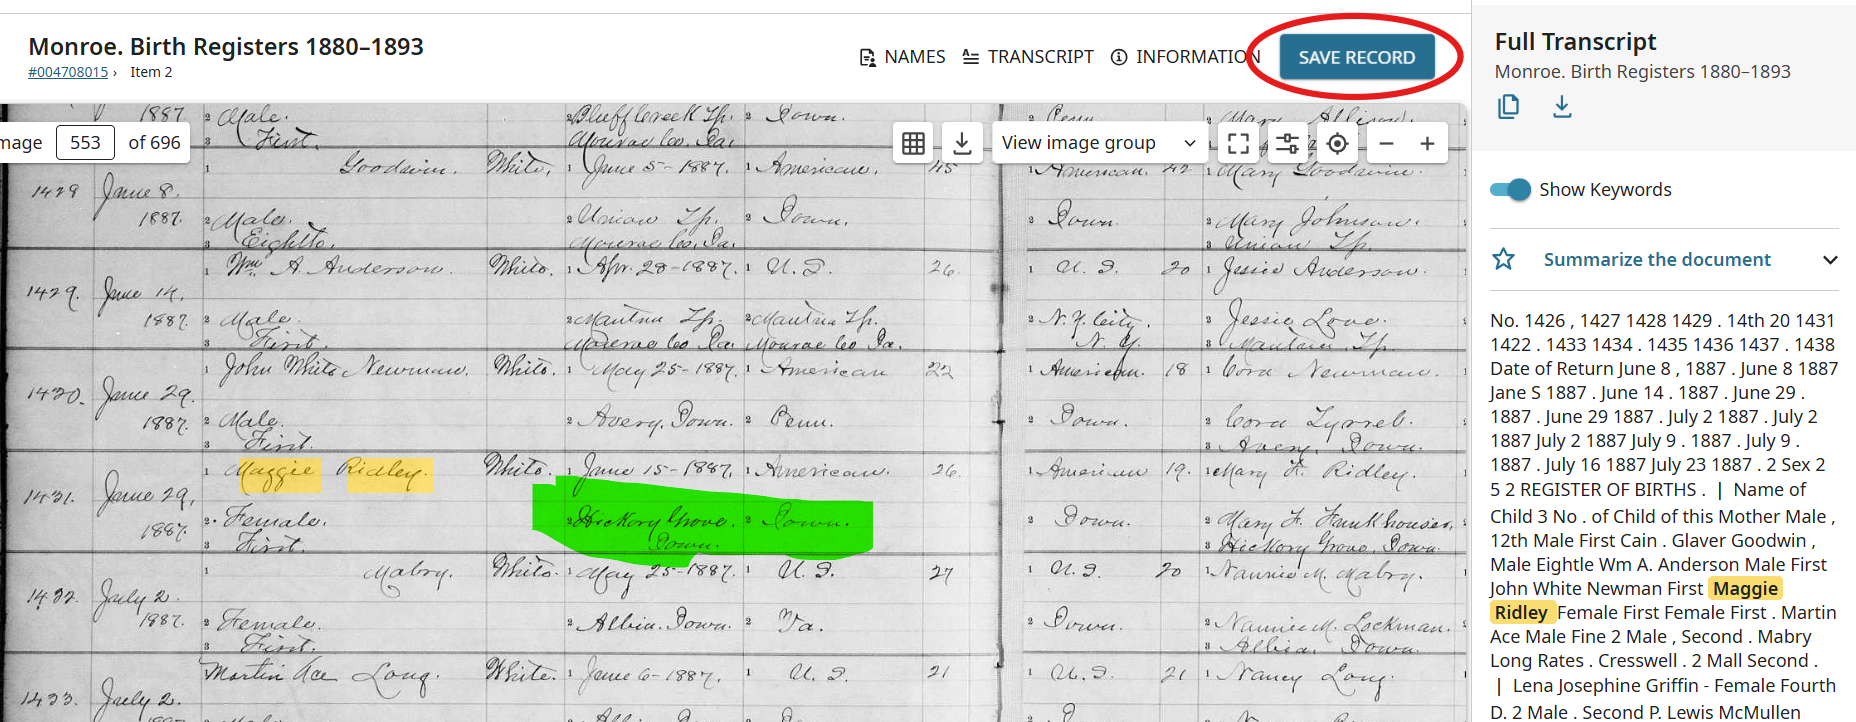 Monroe. Birth Registers 1880–1893
#004708015 › Item 2
NAMES TRANSCRIPT INFORMATION SAVE RECORD
mage 553 of 696
View image group
1887. 2 Male. 2 Bluff Creek Tp. 2 Iowa. Penn 2 Mary Allison.
3 First. Monroe Co. Ia.
1 Goodwin. White. 1 June 5-1887. 1 American. 45 1 American. 42 1 Mary Goodwin.
1428 June 8.
1887. 2 Male. 2 Union Tp. 2 Iowa. 2 Iowa. 2 Mary Johnson.
3 Eighth. Monroe Co. Ia. 3 Union Tp.
1 Wm A. Anderson. White. 1 Apr. 28-1887. 1 U. S. 26. 1 U. S. 20 1 Jessie Anderson.
1429. June 14.
1887. 2 Male. 2 Mantua Tp. 2 Mantua Tp. 2 N. Y. City. 2 Jessie Love.
3 First. Monroe Co. Ia. Monroe Co. Ia. N. Y. 3 Mantua Tp.
1 John White Newman. White. 1 May 25-1887. 1 American 22 1 American. 18 1 Cora Newman.
1430. June 29.
1887. 2 Male. 2 Avery, Iowa. 2 Penn. 2 Iowa. 2 Cora
3 First. 3 Avery, Iowa.
1 Maggie Ridley. White. 1 June 15-1887. 1 American. 26. 1 American 19. 1 Mary F. Ridley.
1431. June 29,
1887. 2. Female. 2 Hickory Grove. 2 Iowa. 2 Iowa. 2 Mary F. Funkhouser,
3 First. Iowa. 3 Hickory Grove, Iowa.
1 Mabry. White. 1 May 25-1887. 1 U. S. 27 1 U. S. 20 1 Nannie M. Mabry.
1432. July 2.
1887. 2 Female. 2 Albia. Iowa. 2 Va. 2 Iowa. 2 Nannie M. Lockman.
3 First. 3 Albia, Iowa.
Martin Ace Long. White. 1 June 6-1887. 1 U. S. 21 1 U. S. 21 1 Nancy Long.
1433. July 2.
Full Transcript
Monroe. Birth Registers 1880–1893
Show Keywords
Summarize the document
No. 1426 , 1427 1428 1429 . 14th 20 1431
1422 . 1433 1434 . 1435 1436 1437 . 1438
Date of Return June 8 , 1887 . June 8 1887
Jane S 1887 . June 14 . 1887 . June 29 .
1887 . June 29 1887 . July 2 1887 . July 2
1887 July 2 1887 July 9 . 1887 . July 9 .
. 1887 . July 16 1887 July 23 1887 . 2 Sex 2
5 2 REGISTER OF BIRTHS . | Name of
Child 3 No . of Child of this Mother Male ,
12th Male First Cain . Glaver Goodwin ,
Male Eightle Wm A. Anderson Male First
John White Newman First Maggie
Ridley Female First Female First . Martin
Ace Male Fine 2 Male , Second . Mabry
Long Rates . Cresswell . 2 Mall Second .
| Lena Josephine Griffin - Female Fourth
D. 2 Male . Second P. Lewis McMullen